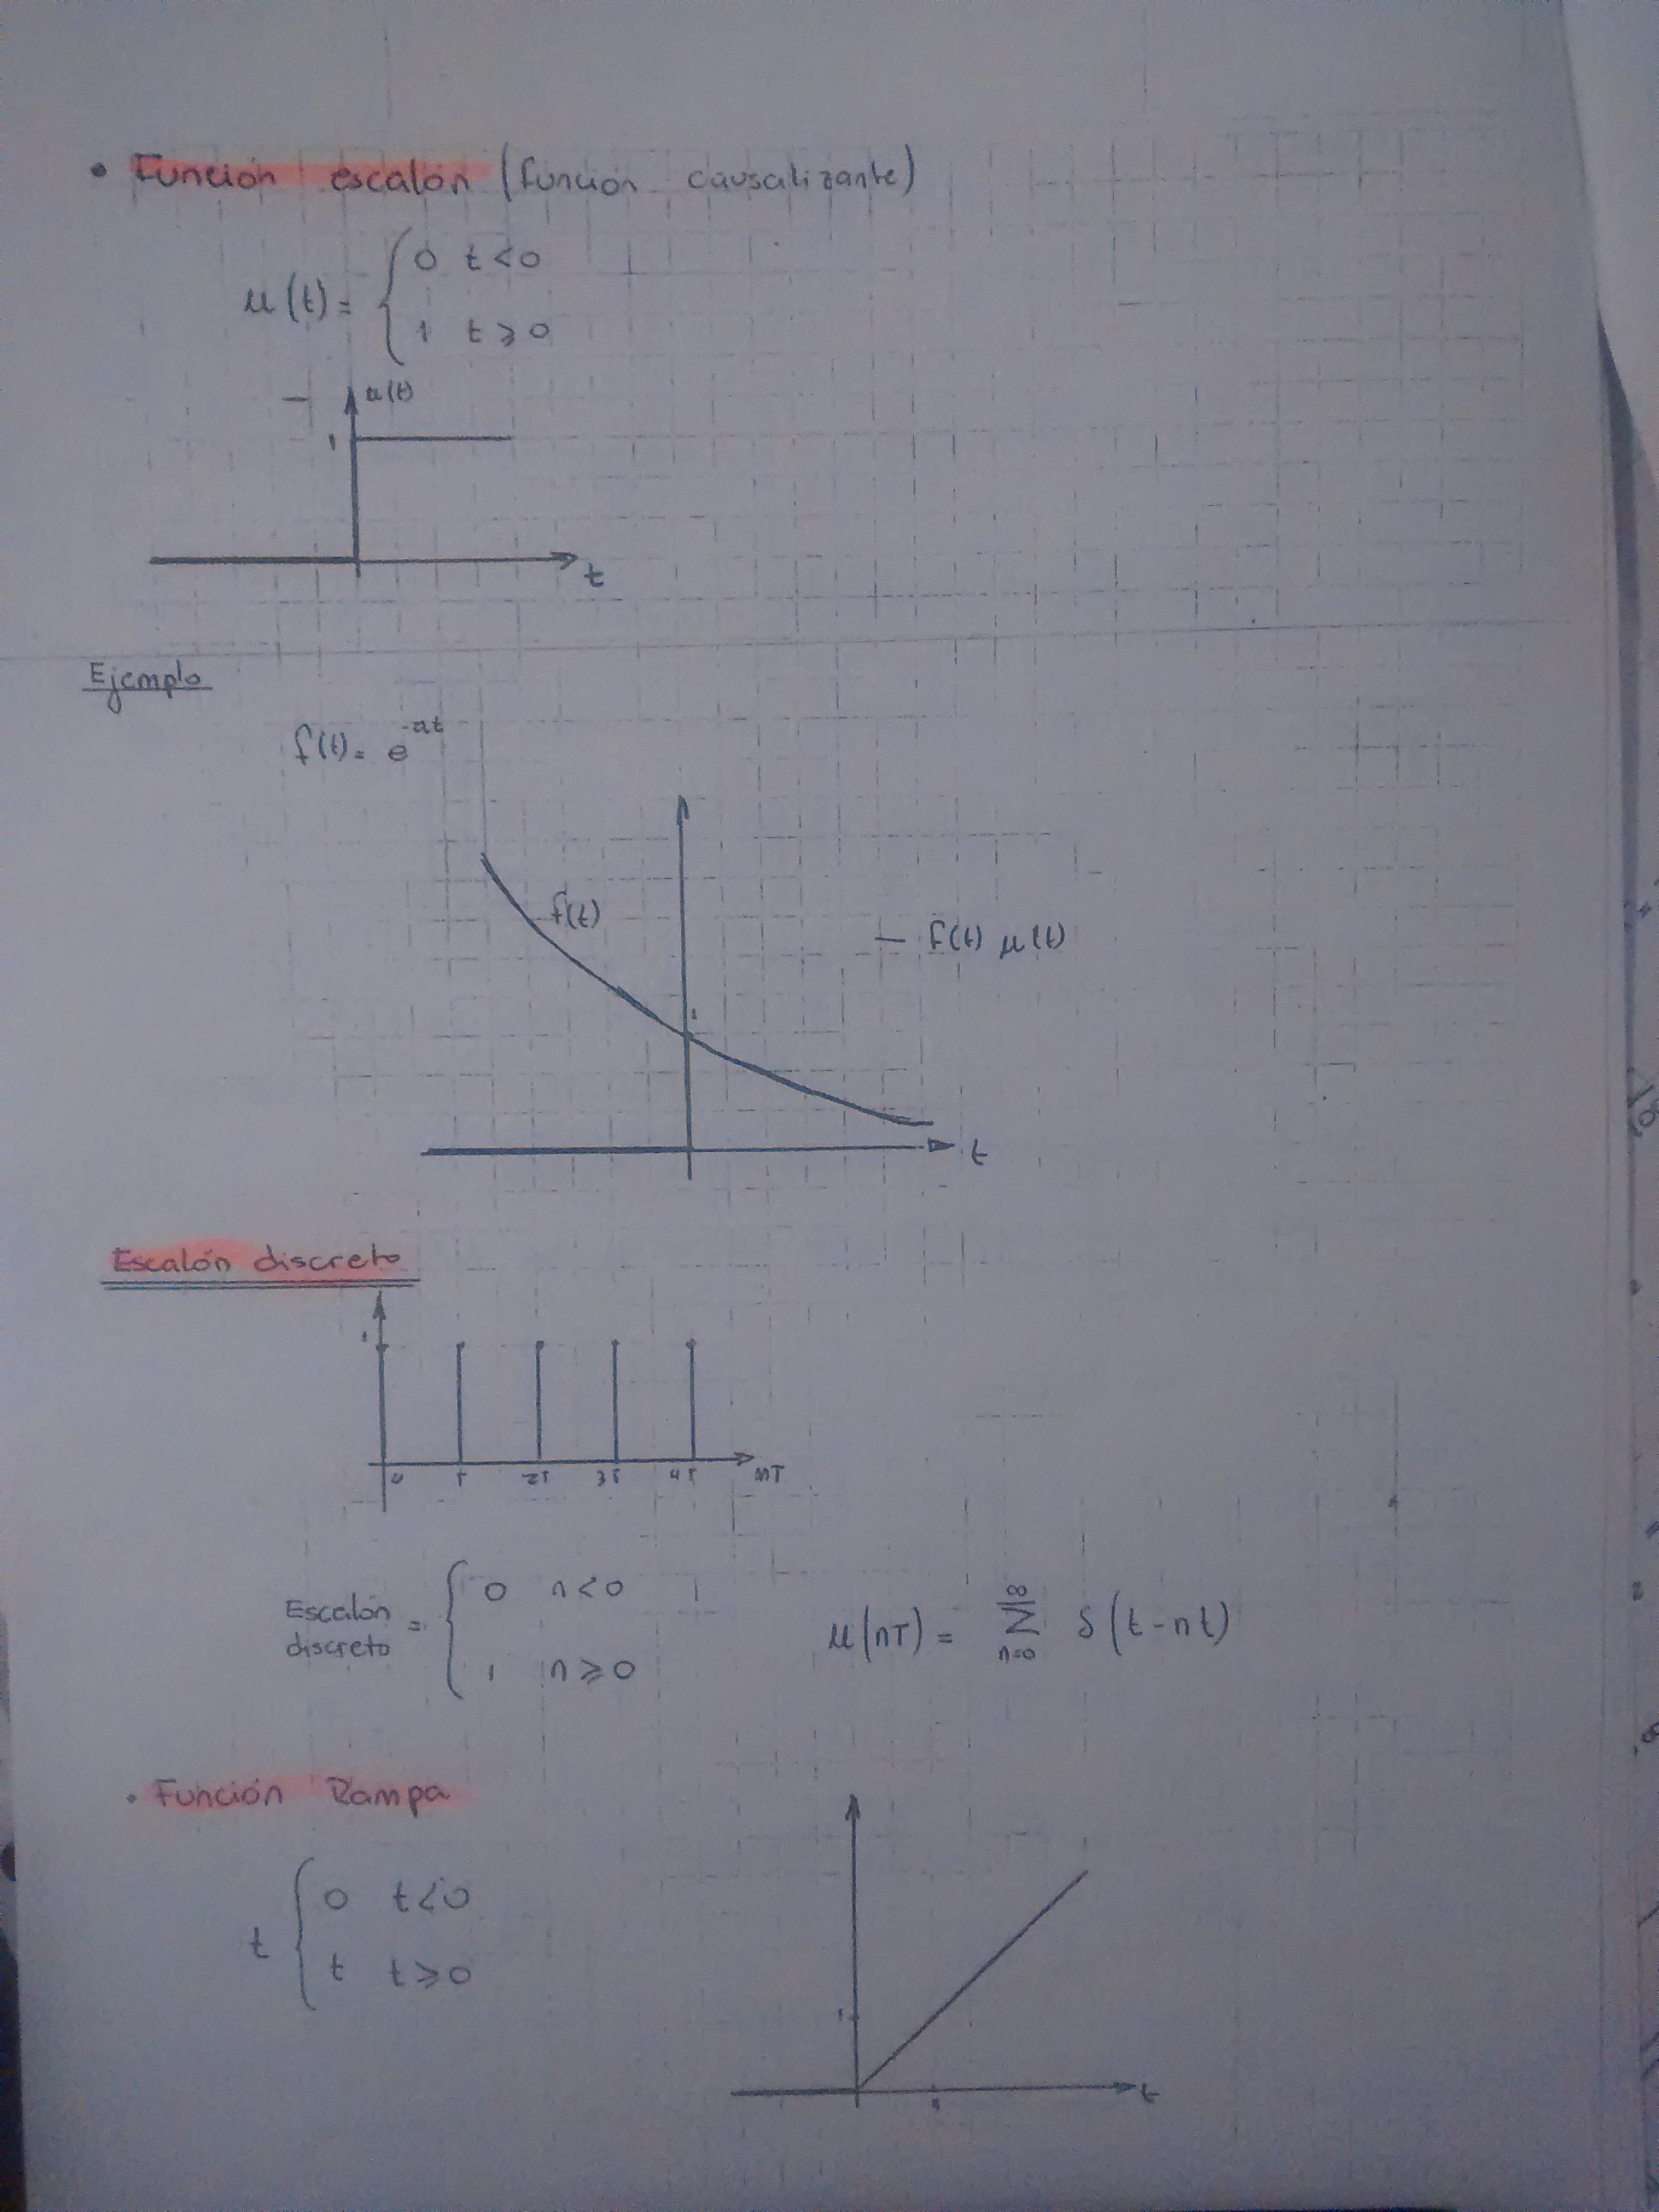 • Función escalón (función causalizante)
μ(t) = { 0 t<0
1 t≥0
— u(t)
1
t
Ejemplo
f(t) = e^-at
f(t)
— f(t) μ(t)
1
t
Escalón discreto
1
0 T 2T 3T 4T nT
Escalón discreto = { 0 n<0
1 n≥0
μ(nT) = ∑ n=0 ∞ δ(t-nt)
• Función Rampa
t { 0 t<0
t t≥0
1
1
t